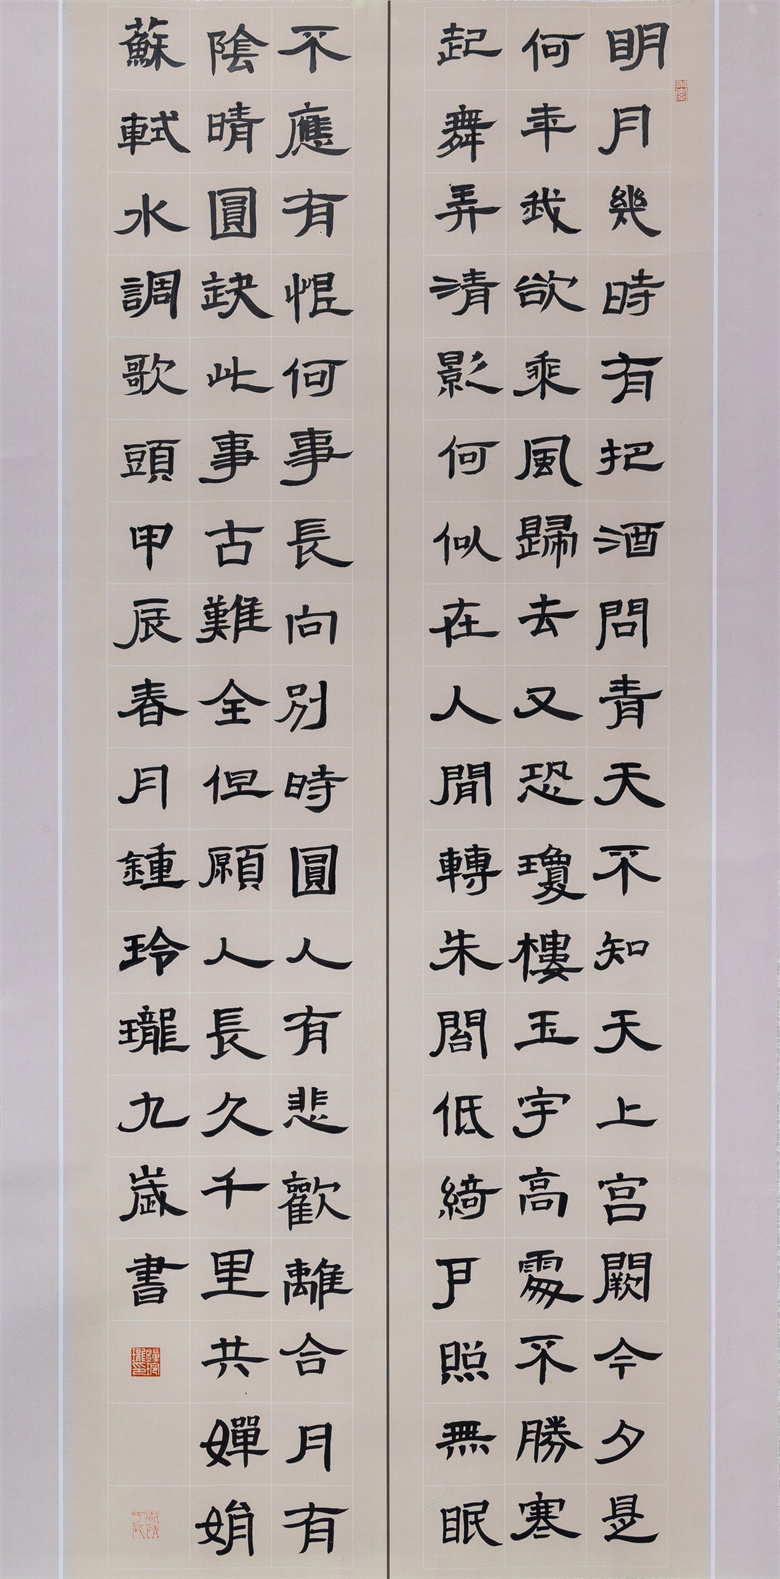 明月幾時有把酒問青天不知天上宮闕今夕是
何年我欲乘風歸去又恐瓊樓玉宇高處不勝寒
起舞弄清影何似在人間轉朱閣低綺戶照無眠
不應有恨何事長向別時圓人有悲歡離合月有
陰晴圓缺此事古難全但願人長久千里共嬋娟
蘇軾水調歌頭甲辰春月鍾玲瓏九歲書